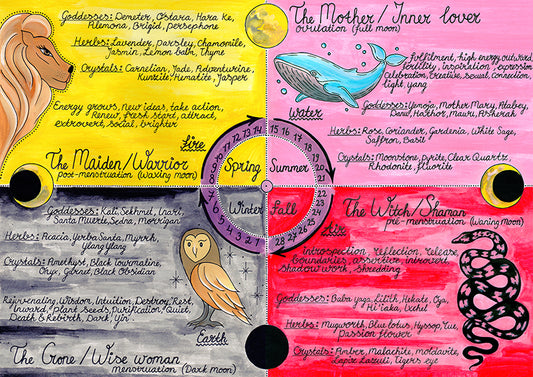 Goddesses: Demeter, Ostara, Hara Ke,
Rhemona, Brigid, persephone
Herbs: Lavender, Parsley, Chamomile,
Jasmin, Lemon balm, Thyme
Crystals: Carnelian, Jade, Adventurine,
Kunzite, Hematite, Jasper
Energy grows, new ideas, take action,
Renew, fresh start, attract,
extrovert, social, brighter
Fire
The Maiden/Warrior
post-menstruation (Waxing moon)
The Mother/Inner lover
ovulation (full moon)
fulfilment, high energy outward,
fertility, inspiration, expression,
Celebration, Creative, sexual, connection,
light, yang
Water
Goddesses: Yemoja, Mother Mary, Atabey,
Danu, Hathor, Mauri, Asherah
Herbs: Rose, Coriander, Gardenia, White Sage,
Saffron, Basil
Crystals: Moonstone, pyrite, Clear Quartz,
Rhodonite, fluorite
Spring
Summer
Winter
Fall
1 2 3 4 5 6 7 8 9 10 11 12 13 14 15 16 17 18 19 20 21 22 23 24 25 26 27 28
Goddesses: Kali, Sekhmit, Inari,
Santa Muerte, Sedna, Morrigan
Herbs: Acacia, Yerba Santa, Myrrh,
Ylang Ylang
Crystals: Amethyst, Black Tourmaline,
Onyx, Garnet, Black Obsidian
Rejuvenating, Wisdom, Intuition, Destroy, Rest,
Inward, Plant Seeds, Purification, Quiet,
Death & Rebirth, Dark, Yin
Earth
The Crone/Wise woman
menstruation (Dark moon)
The Witch/Shaman
pre-menstruation (Waning Moon)
Air
Introspection, reflection, release,
boundaries, assertive, introvert
Shadow work, Shredding
Goddesses: Baba yaga, Lilith, Hekate, Oya,
Hi'iaka, Ixchel
Herbs: Mugworth, Blue lotus, Hyssop, Rue,
Passion flower
Crystals: Amber, Malachite, moldavite,
Lapis Lazuli, Tigers eye